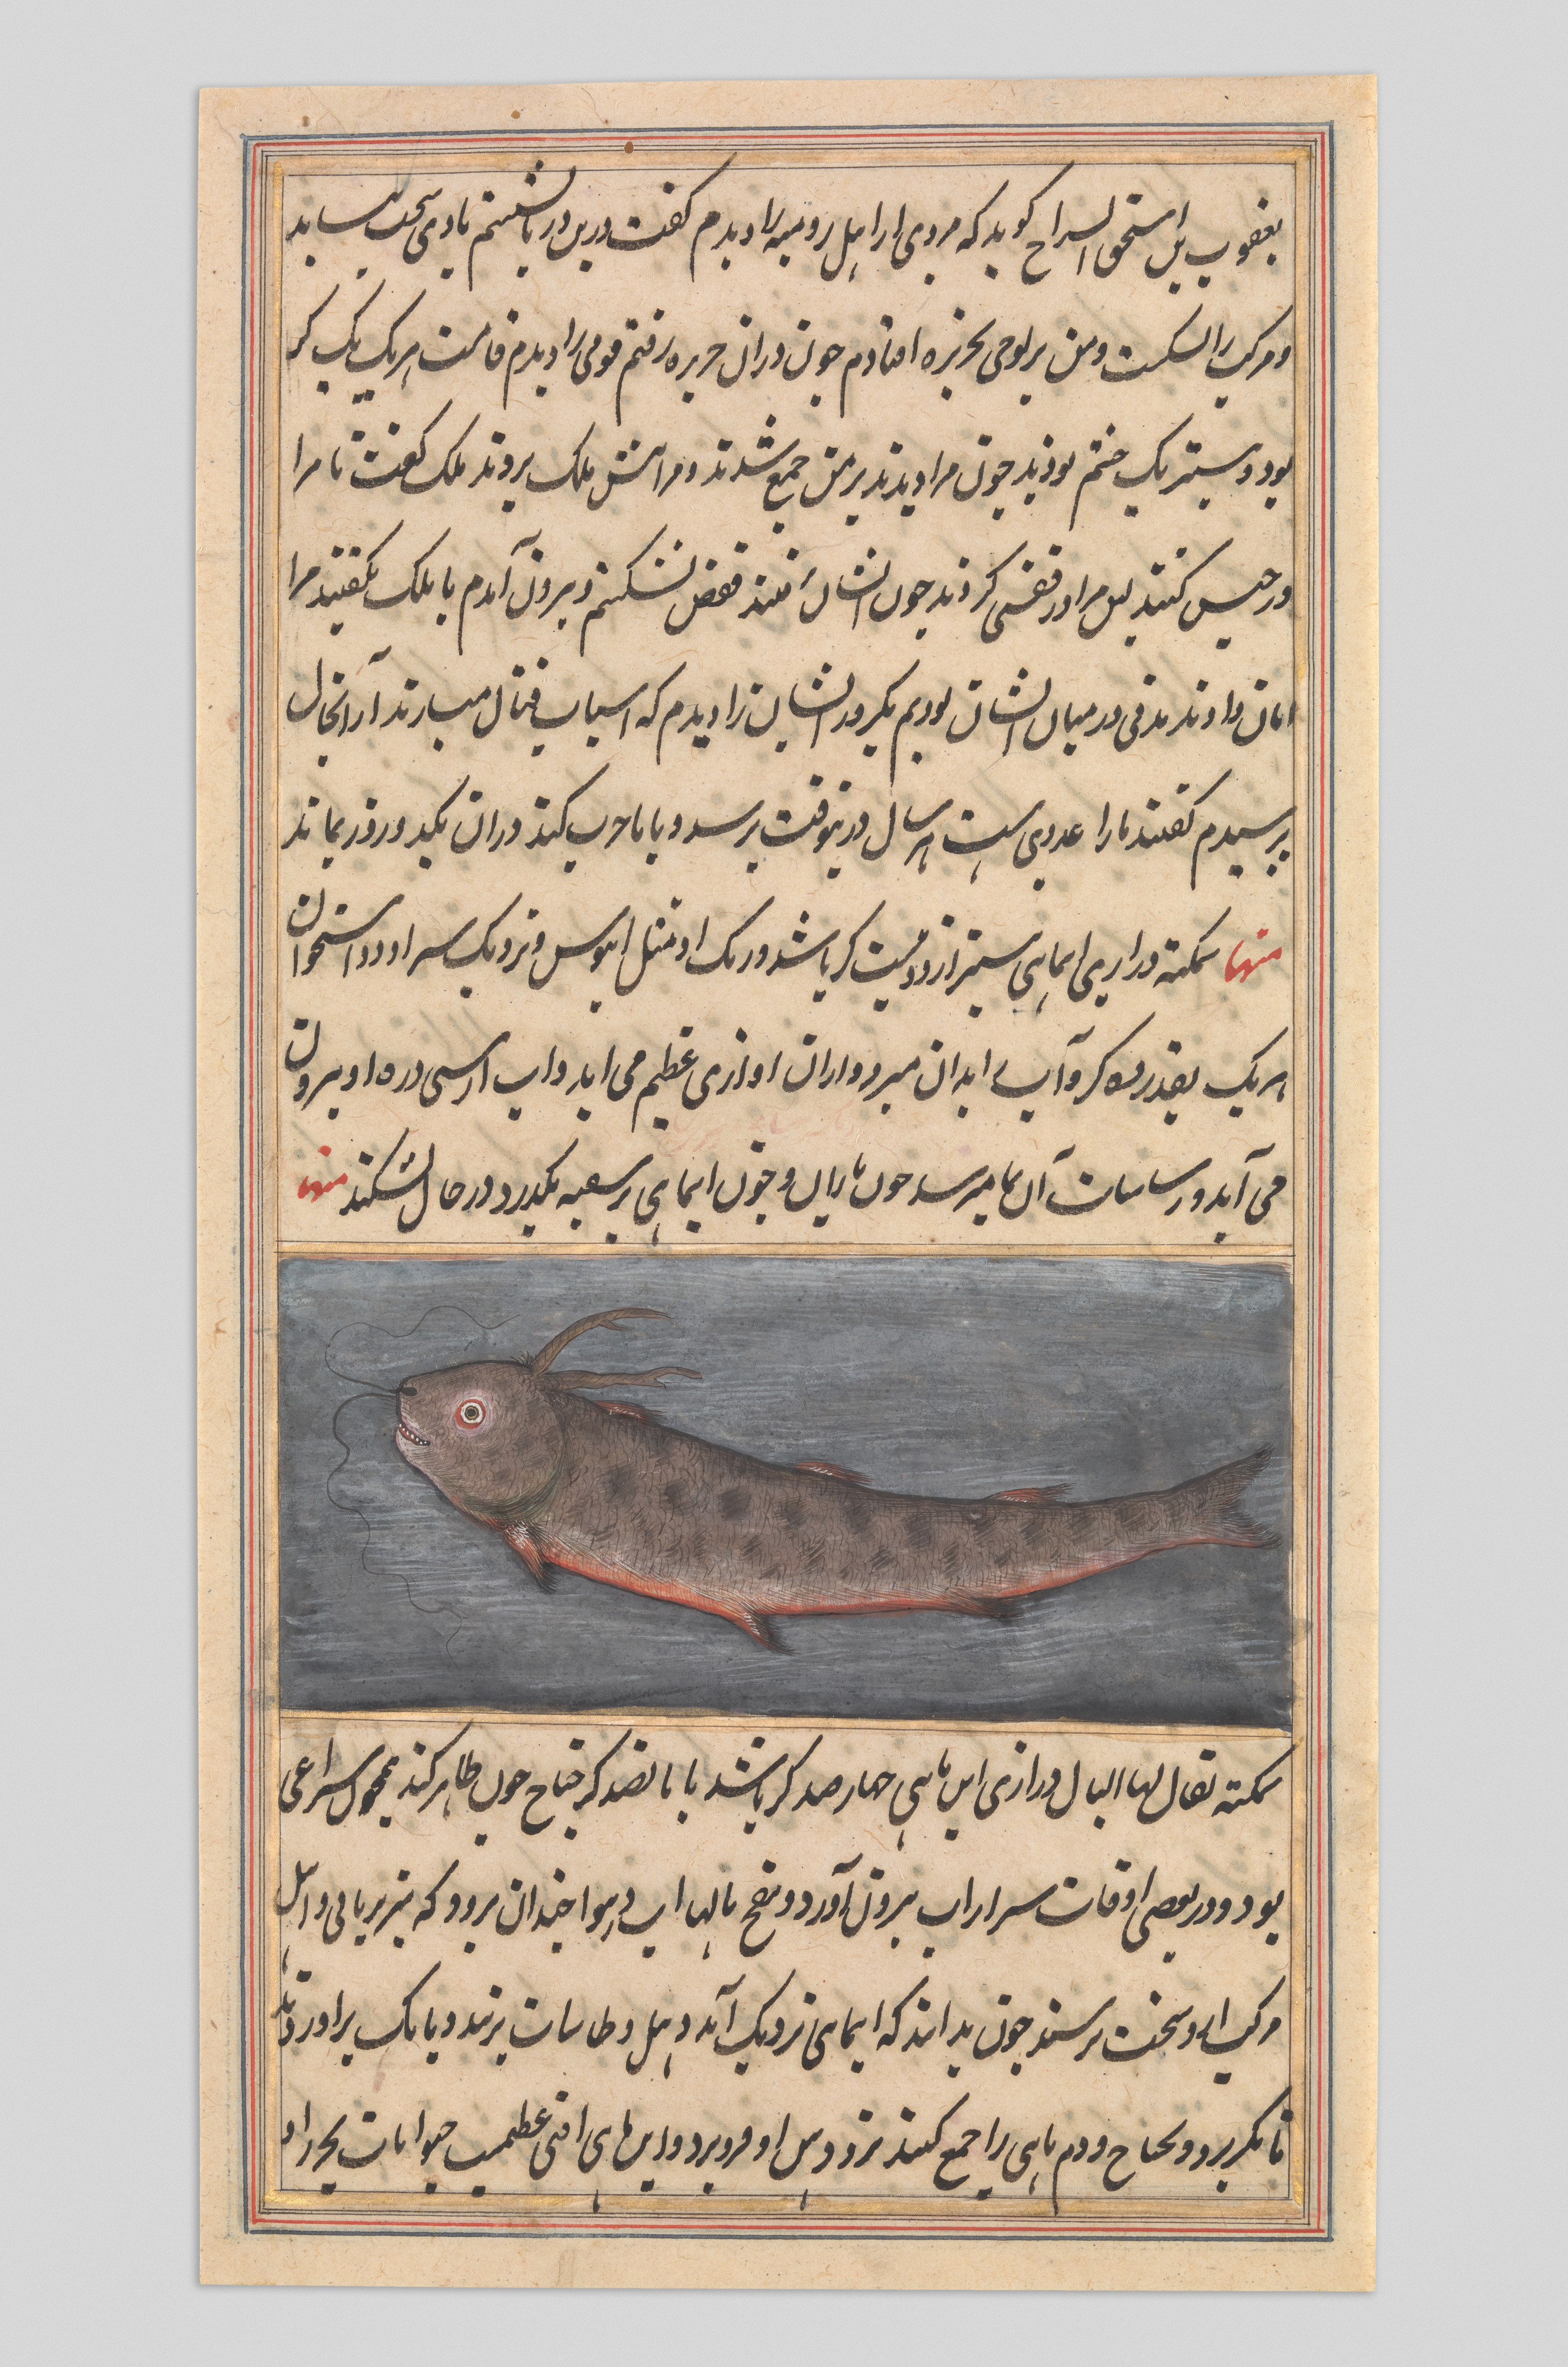 یعقوب بن اسحق السراح کوید که مردی از اهل رومیه را دیدم کفت درین دریا نشستم بادی سخت
و مرکب را بشکست و من بر لوحی بجزیره افتادم چون دران جزیره رفتم قومی را دیدم قامت هر یک یک کز
بود و بیشتر یک چشم بودند چون مرا دیدند بر من جمع شدند و مرا پیش ملک بردند ملک کفت تا مرا
در حبس کنند پس مرا در قفسی کردند چون ایشان قفص بشکستم و بیرون آمدم با ملک بکفتند مرا
امان دادند مدتی در میان ایشان بودم یکروز ایشان را دیدم که اسباب قتال میسازند از آنحال
پرسیدم کفتند ما را عدوی ست هر سال درینوقت برسد و با ما حرب کند دران بکد و روز بماند
منها سمکته درازی ایماهی بیشتر از دویست کز باشد و رنک او مثل ابنوس و نزدیک سر او دو استخوان
هر یک بقدر ده کز و آب ابدان میزد و ازان اوازی عظیم می اید و اب از سی دره او بیرون
می آید و ساسات آن بما میرسد چون باران و چون ایماهی بر سفینه بکذرد در حال بشکند منها
سمکته یقال لها البال درازی این ماهی چهار صد کز باشد با پانصد کز جناح چون ظاهر کند همچون شراعی
بود و در بعضی اوقات سر از اب بیرون آورد و نفخ بالها اب در هوا چندان برود که تیر پرتابی و اهل
مرکب از وسخت ترسند چون بدانند که ایماهی نزدیک آمد دهل و طاسات بزنند و بانک براورند
تا بکریزد و بجناح و دم ماهی را جمع کنند نزد دهن او فرو برد و این ماهی افتی عظیمست حیوانات بحر را و